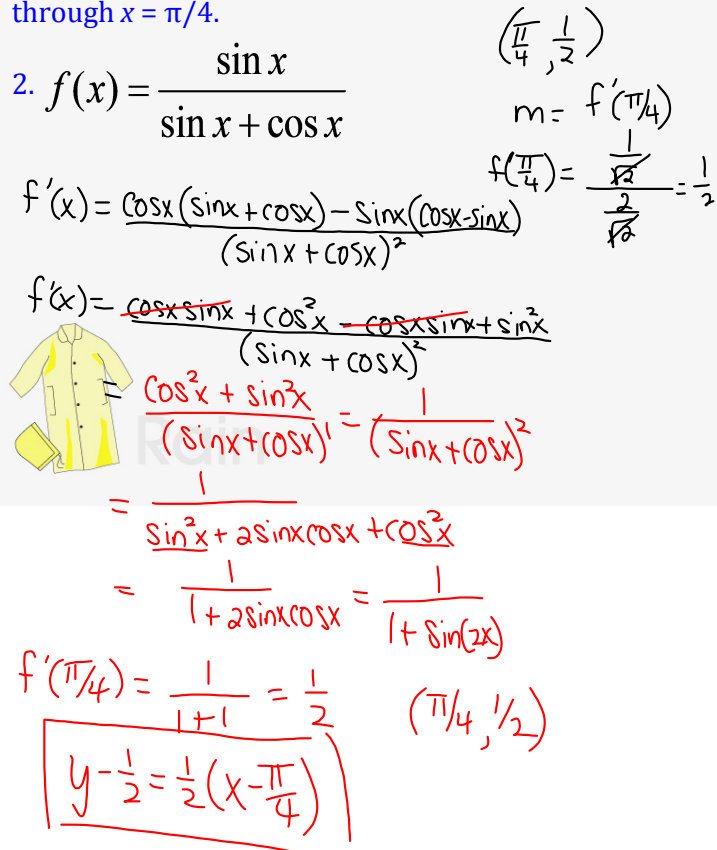 through x = π/4.
2. f(x) = sin x / (sin x + cos x)
(π/4, 1/2)
m = f'(π/4)
f(π/4) = (1/√2) / (2/√2) = 1/2
f'(x) = (cosx(sinx + cosx) - sinx(cosx - sinx)) / (sinx + cosx)²
f'(x) = (cosx sinx + cos²x - cosxsinx + sin²x) / (sinx + cosx)²
= (cos²x + sin²x) / (sinx + cosx)' = 1 / (sinx + cosx)²
Rain
= 1 / (sin²x + 2sinxcosx + cos²x)
= 1 / (1 + 2sinxcosx) = 1 / (1 + sin(2x))
f'(π/4) = 1 / (1 + 1) = 1/2 (π/4, 1/2)
y - 1/2 = 1/2(x - π/4)